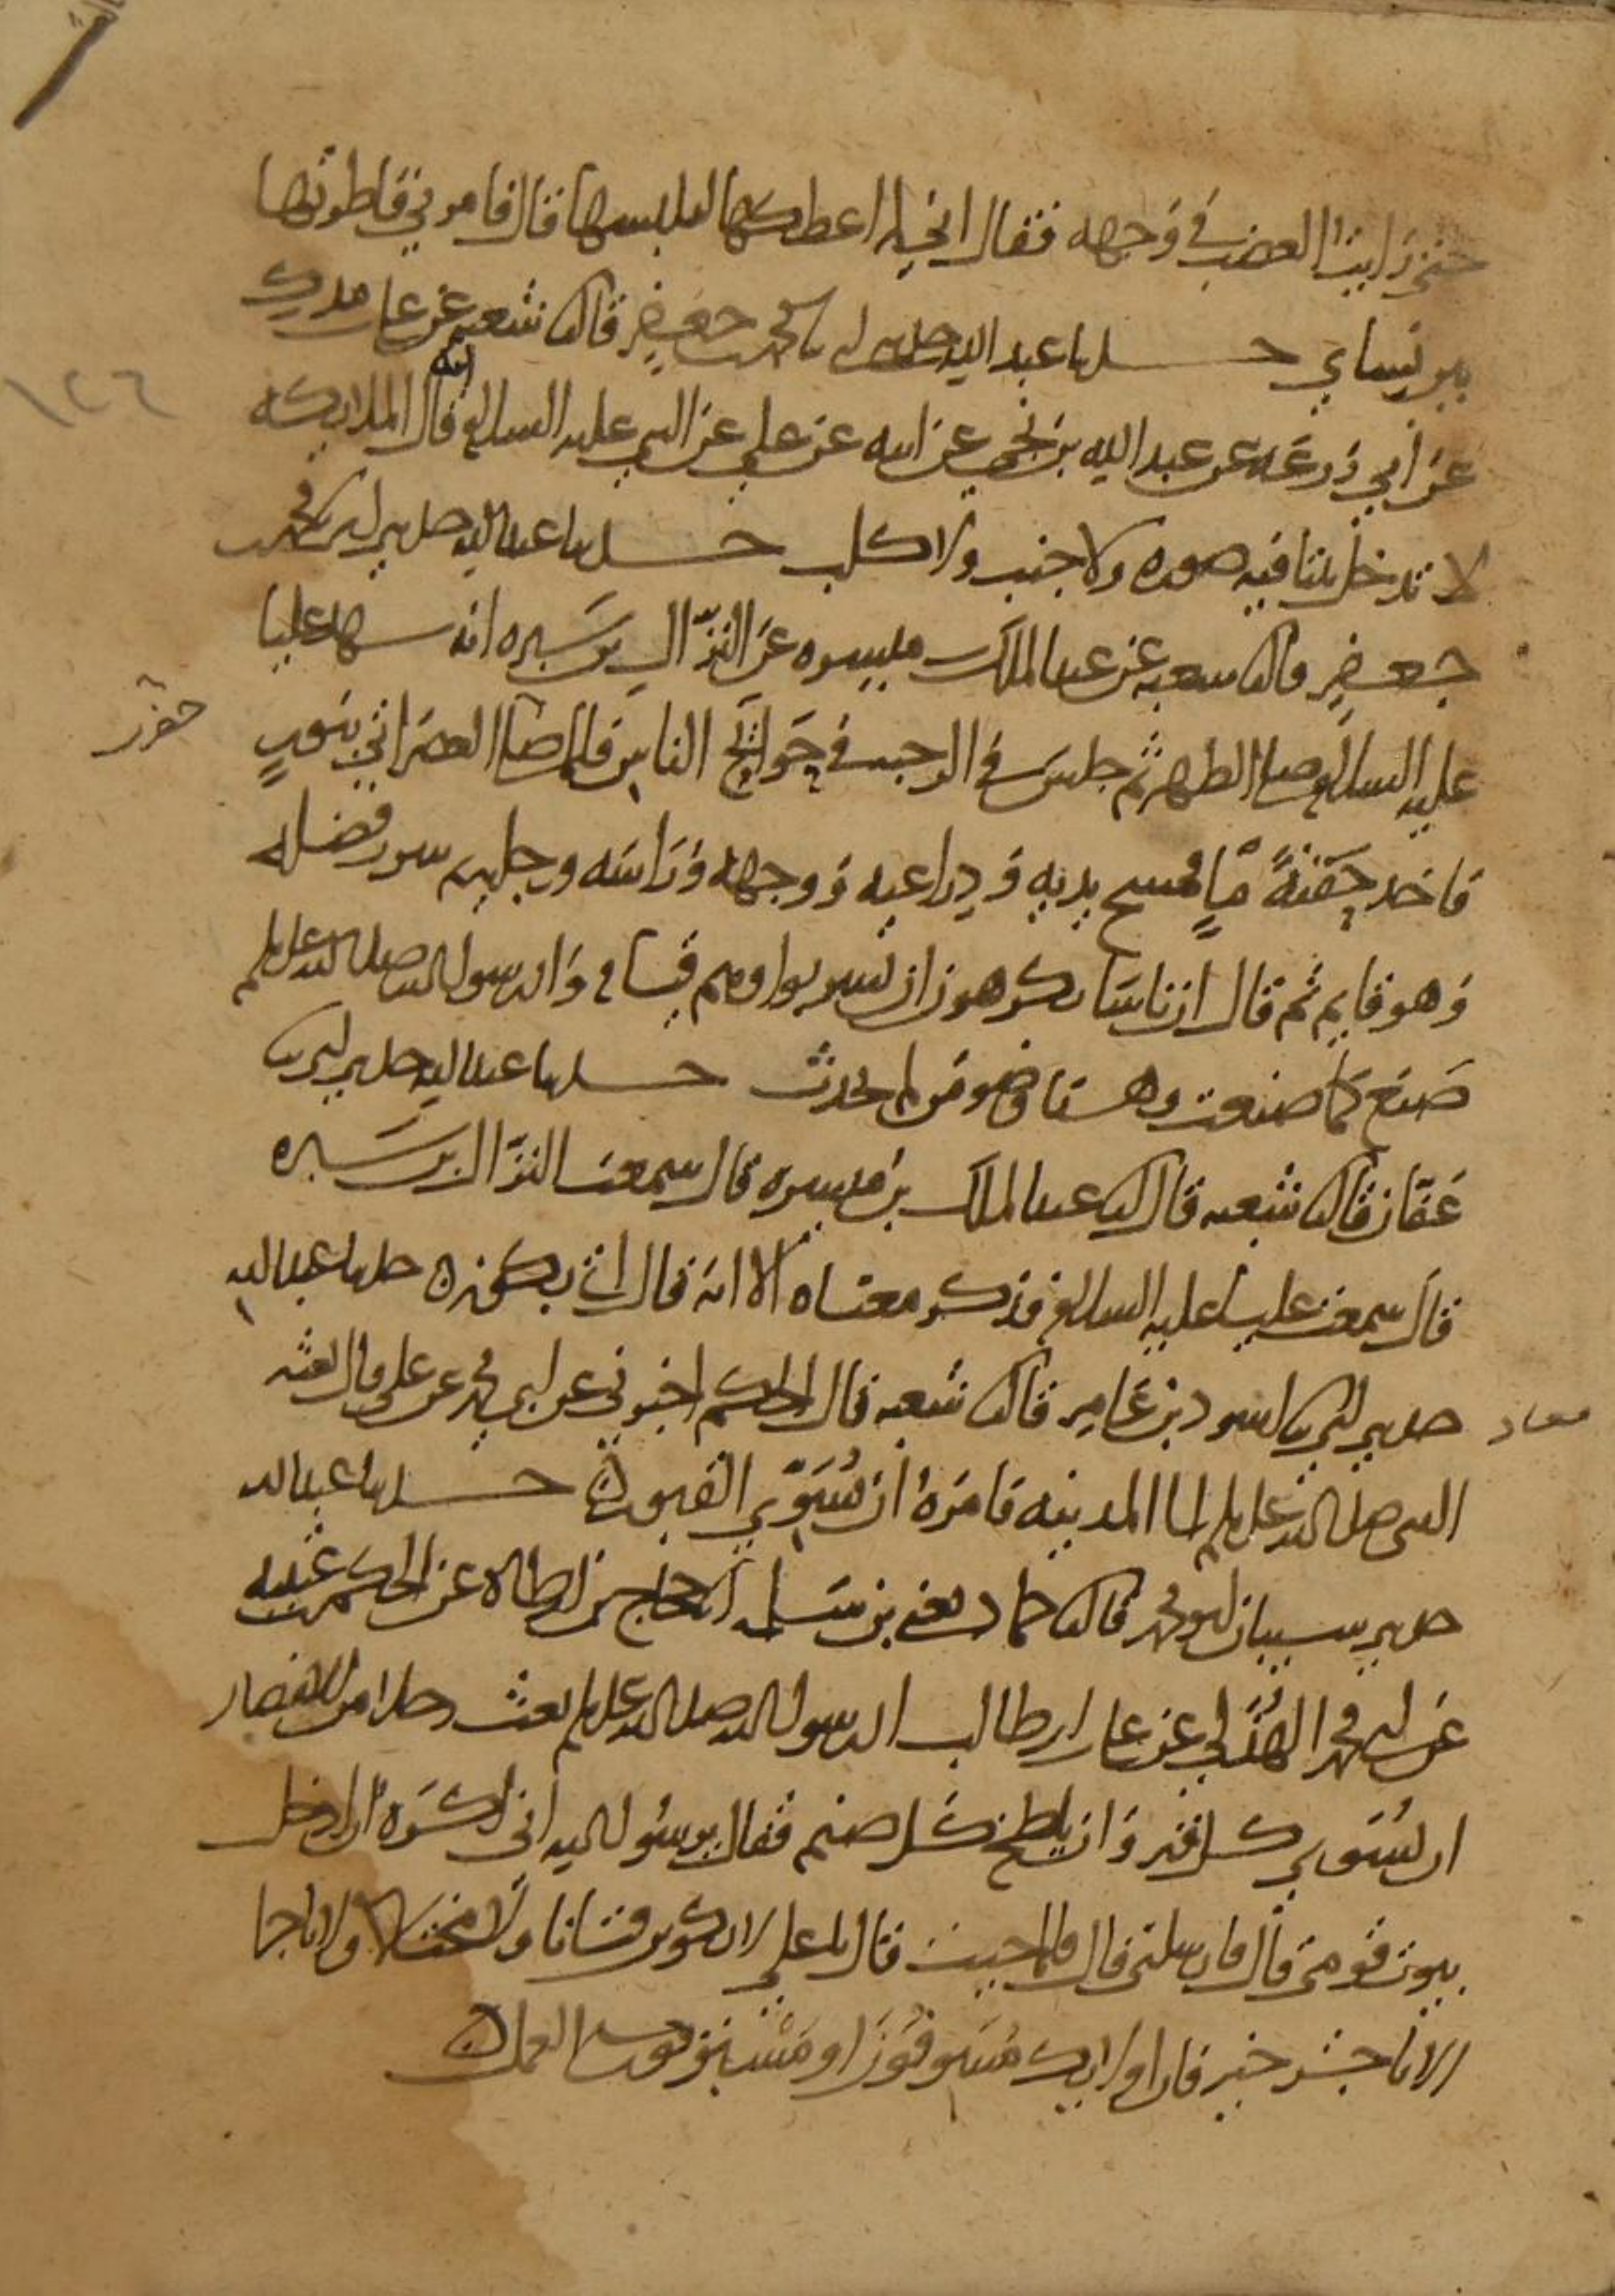 حتى رايت الغضب في وجهه فقال اني لم اعطكها لتلبسها قال فامرني فاطرتها
بين نسائي حدثنا عبد الله حدثني ابي نا محمد بن جعفر قال نا شعبه عن علي بن مدرك
عن ابي زرعه عن عبد الله بن نجي عن ابيه عن علي عن النبي عليه السلام انه قال الملايكه
لا تدخل بيتا فيه صوره ولا جنب ولا كلب حدثنا عبد الله حدثني ابي نا محمد بن
جعفر قال نا شعبه عن عبد الملك بن ميسره عن النزال بن سبره انه شهد عليا
عليه السلام صلى الظهر ثم جلس في الرحبه في حوايج الناس فلما حضرت العصر اتي بتور
فاخذ حفنة ماء فمسح يديه وذراعيه ووجهه وراسه ورجليه ثم شرب فضله
وهو قايم ثم قال ان ناسا يكرهون ان يشربوا وهم قيام وان رسول الله صلى الله عليه وسلم
صنع كما صنعت وهذا وضو من لم يحدث حدثنا عبد الله حدثني ابي نا
عفان قال نا شعبه قال نا عبد الملك بن ميسره قال سمعت النزال بن سبره
قال سمعت عليا عليه السلام فذكر معناه الا انه قال اتي بكوز حدثنا عبد الله
حدثني ابي نا اسود بن عامر قال نا شعبه قال الحكم اخبرني عن ابي محمد عن علي قال بعثه
النبي صلى الله عليه وسلم الى المدينه فامره ان يسوي القبور حدثنا عبد الله
حدثني شيبان ابو محمد قال نا حماد يعني بن سلمه انا حجاج بن ارطاه عن الحكم بن عتيبه
عن ابي محمد الهذلي عن علي بن ابي طالب ان رسول الله صلى الله عليه وسلم بعث رجلا من الانصار
ان يسوي كل قبر وان يلطخ كل صنم فقال يرسول الله اني اكره ان ادخل
بيوت قومي قال فارسلني قال فلما جيت قال يا علي لا تكونن فتانا ولا مختالا ولا تاجرا
الا تاجر خير فان اوليك مسوفون او مسبوقون في العمل